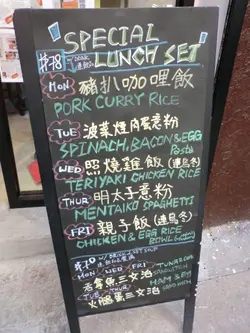 SPECIAL
LUNCH SET
$78
MON 豬扒咖哩飯
PORK CURRY RICE
TUE 菠菜煙肉蛋意粉
SPINACH, BACON & EGG
Pasta
WED 照燒雞飯 (連烏冬)
TERIYAKI CHICKEN RICE
THUR 明太子意粉
MENTAIKO SPAGHETTI
FRI 親子飯 (連烏冬)
CHICKEN & EGG RICE
BOWL
MON WED FRI
三文治
TUE THUR
火腿蛋三文治
HAM & EGG